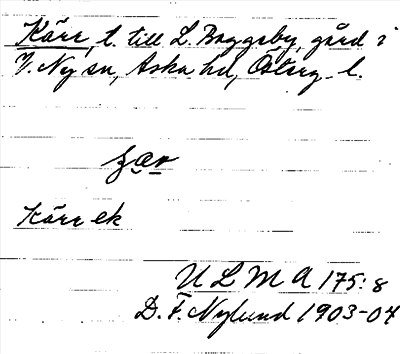 Kärr, t. till L. Boggeby, gård i
V. Ny sn, Aska hd, Österg. l.
Kärr ek
U L M A 175:8
D. F. Nylund 1903-04